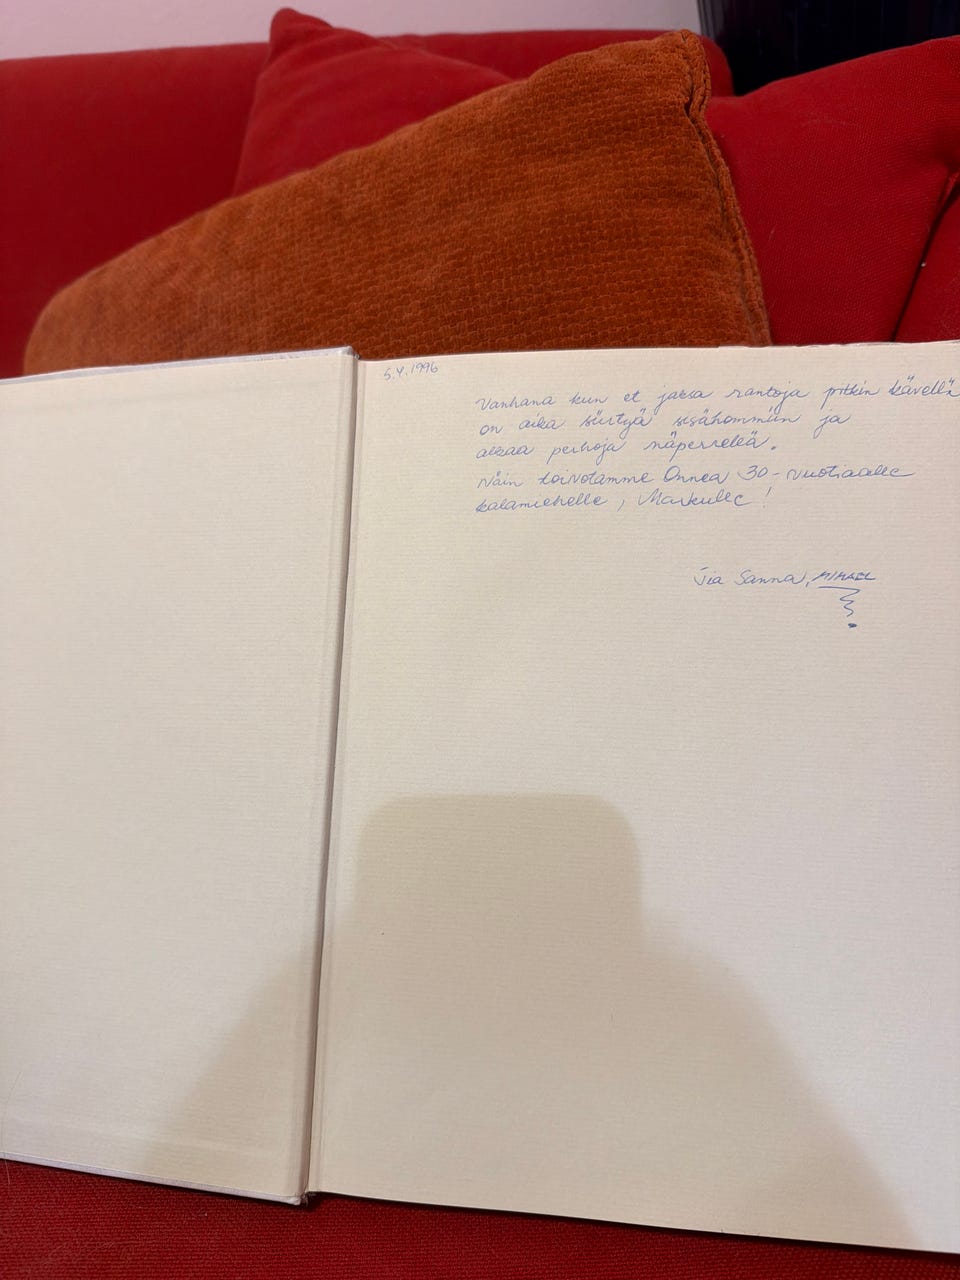 5.4.1996
Vanhana kun et jaksa rantoja pitkin kävellä
on aika siirtyä sisähommiin ja
alkaa perhoja näperrellä.
Näin toivotamme Onnea 30-vuotiaalle
kalamiehelle, Markulle!
Tia Sanna, MIKAEL